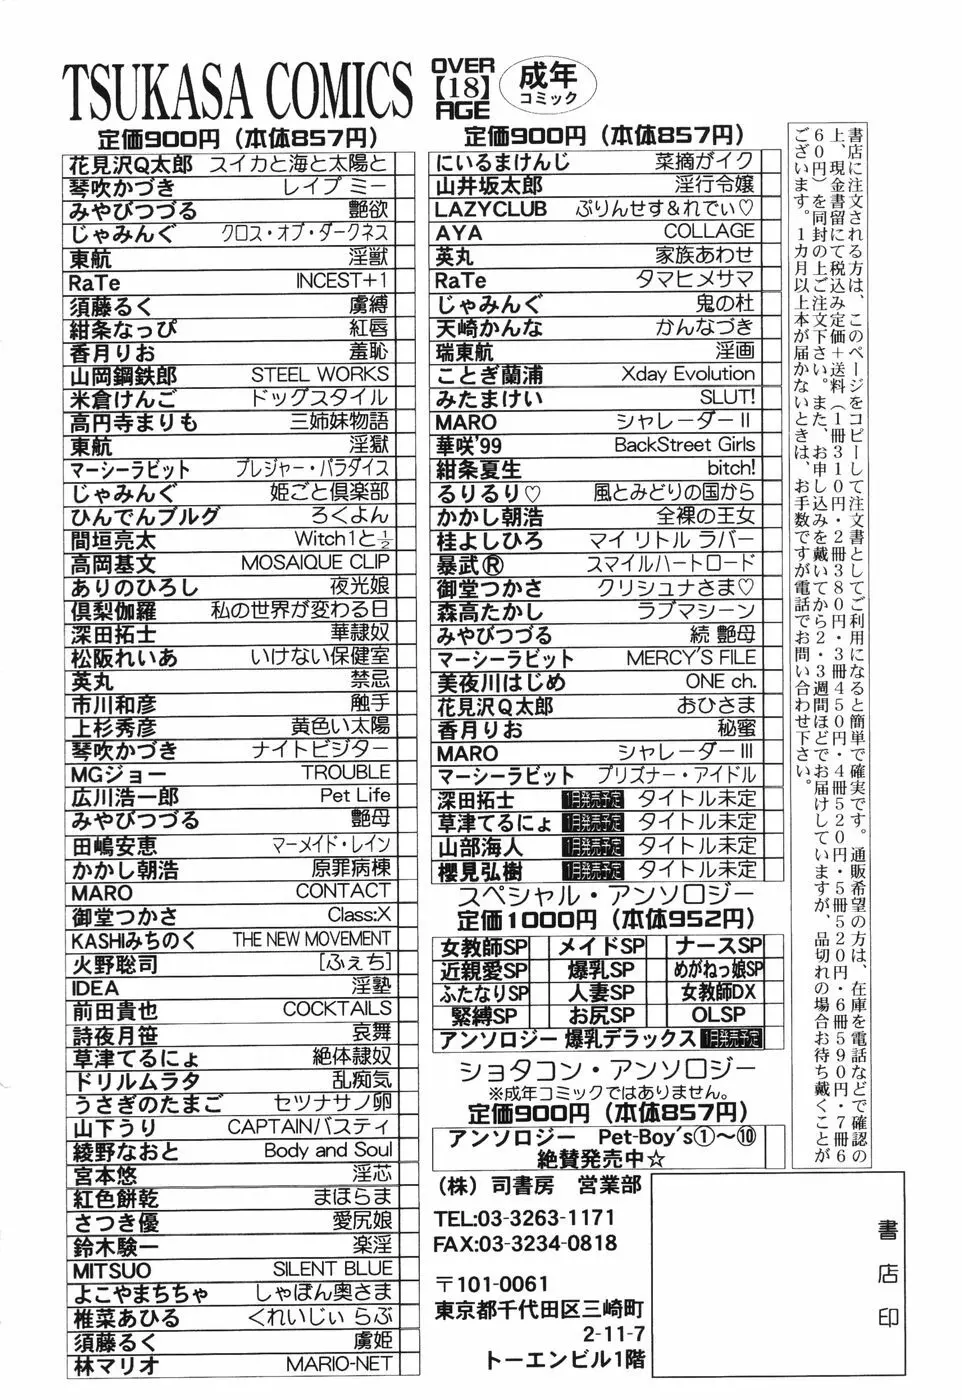 TSUKASA COMICS
OVER
【18】
AGE
成年
コミック
定価900円（本体857円）
花見沢Q太郎 スイカと海と太陽と
琴吹かづき レイプ ミー
みやびつづる 艶欲
じゃみんぐ クロス・オブ・ダークネス
東航 淫獣
RaTe INCEST+1
須藤るく 虜縛
紺条なっぴ 紅唇
香月りお 羞恥
山岡鋼鉄郎 STEEL WORKS
米倉けんご ドッグスタイル
高円寺まりも 三姉妹物語
東航 淫獄
マーシーラビット プレジャー・パラダイス
じゃみんぐ 姫ごと倶楽部
ひんでんブルグ ろくよん
間垣亮太 Witch1と½
高岡基文 MOSAIQUE CLIP
ありのひろし 夜光娘
倶梨伽羅 私の世界が変わる日
深田拓士 華隷奴
松阪れいあ いけない保健室
英丸 禁忌
市川和彦 触手
上杉秀彦 黄色い太陽
琴吹かづき ナイトビジター
MGジョー TROUBLE
広川浩一郎 Pet Life
みやびつづる 艶母
田嶋安恵 マーメイド・レイン
かかし朝浩 原罪病棟
MARO CONTACT
御堂つかさ Class:X
KASHIみちのく THE NEW MOVEMENT
火野聡司 [ふぇち]
IDEA 淫塾
前田貴也 COCKTAILS
詩夜月笹 哀舞
草津てるにょ 絶体隷奴
ドリルムラタ 乱痴気
うさぎのたまご セツナサノ卵
山下うり CAPTAINバスティ
綾野なおと Body and Soul
宮本悠 淫芯
紅色餅乾 まほらま
さつき優 愛尻娘
鈴木験一 楽淫
MITSUO SILENT BLUE
よこやまちちゃ しゃぼん奥さま
椎菜あひる くれいじぃ らぶ
須藤るく 虜姫
林マリオ MARIO-NET
定価900円（本体857円）
にいるまけんじ 菜摘がイク
山井坂太郎 淫行令嬢
LAZYCLUB ぷりんせす＆れでぃ♡
AYA COLLAGE
英丸 家族あわせ
RaTe タマヒメサマ
じゃみんぐ 鬼の杜
天崎かんな かんなづき
瑞東航 淫画
ことぎ蘭浦 Xday Evolution
みたまけい SLUT!
MARO シャレーダーII
華咲'99 BackStreet Girls
紺条夏生 bitch!
るりるり♡ 風とみどりの国から
かかし朝浩 全裸の王女
桂よしひろ マイ リトル ラバー
暴武Ⓡ スマイルハートロード
御堂つかさ クリシュナさま♡
森高たかし ラブマシーン
みやびつづる 続 艶母
マーシーラビット MERCY'S FILE
美夜川はじめ ONE ch.
花見沢Q太郎 おひさま
香月りお 秘蜜
MARO シャレーダーIII
マーシーラビット プリズナー・アイドル
深田拓士 1月発売予定 タイトル未定
草津てるにょ 1月発売予定 タイトル未定
山部海人 1月発売予定 タイトル未定
櫻見弘樹 1月発売予定 タイトル未定
スペシャル・アンソロジー
定価1000円（本体952円）
女教師SP メイドSP ナースSP
近親愛SP 爆乳SP めがねっ娘SP
ふたなりSP 人妻SP 女教師DX
緊縛SP お尻SP OLSP
アンソロジー 爆乳デラックス 1月発売予定
ショタコン・アンソロジー
※成年コミックではありません。
定価900円（本体857円）
アンソロジー Pet-Boy's①～⑩
絶賛発売中☆
（株）司書房 営業部
TEL:03-3263-1171
FAX:03-3234-0818
〒101-0061
東京都千代田区三崎町
2-11-7
トーエンビル1階
書店印
書店に注文される方は、このページをコピーして注文書としてご利用になると簡単で確実です。通販希望の方は、在庫を電話などで確認の
上、現金書留にて税込み定価＋送料（1冊310円・2冊380円・3冊450円・4冊520円・5冊520円・6冊590円・7冊6
60円）を同封の上ご注文下さい。また、お申し込みを戴いてから2・3週間ほどでお届けしていますが、品切れの場合お待ち戴くことが
ございます。1カ月以上本が届かないときは、お手数ですが電話でお問い合わせ下さい。